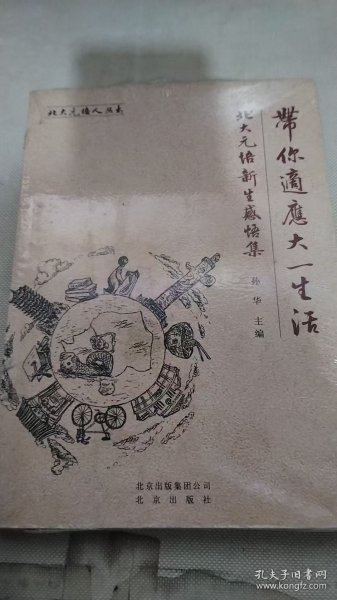 北大元培人丛书
帶你適應大一生活
北大元培新生感悟集
孙华 主编
北京出版集团公司
北京出版社
孔夫子旧书网
www.kongfz.com